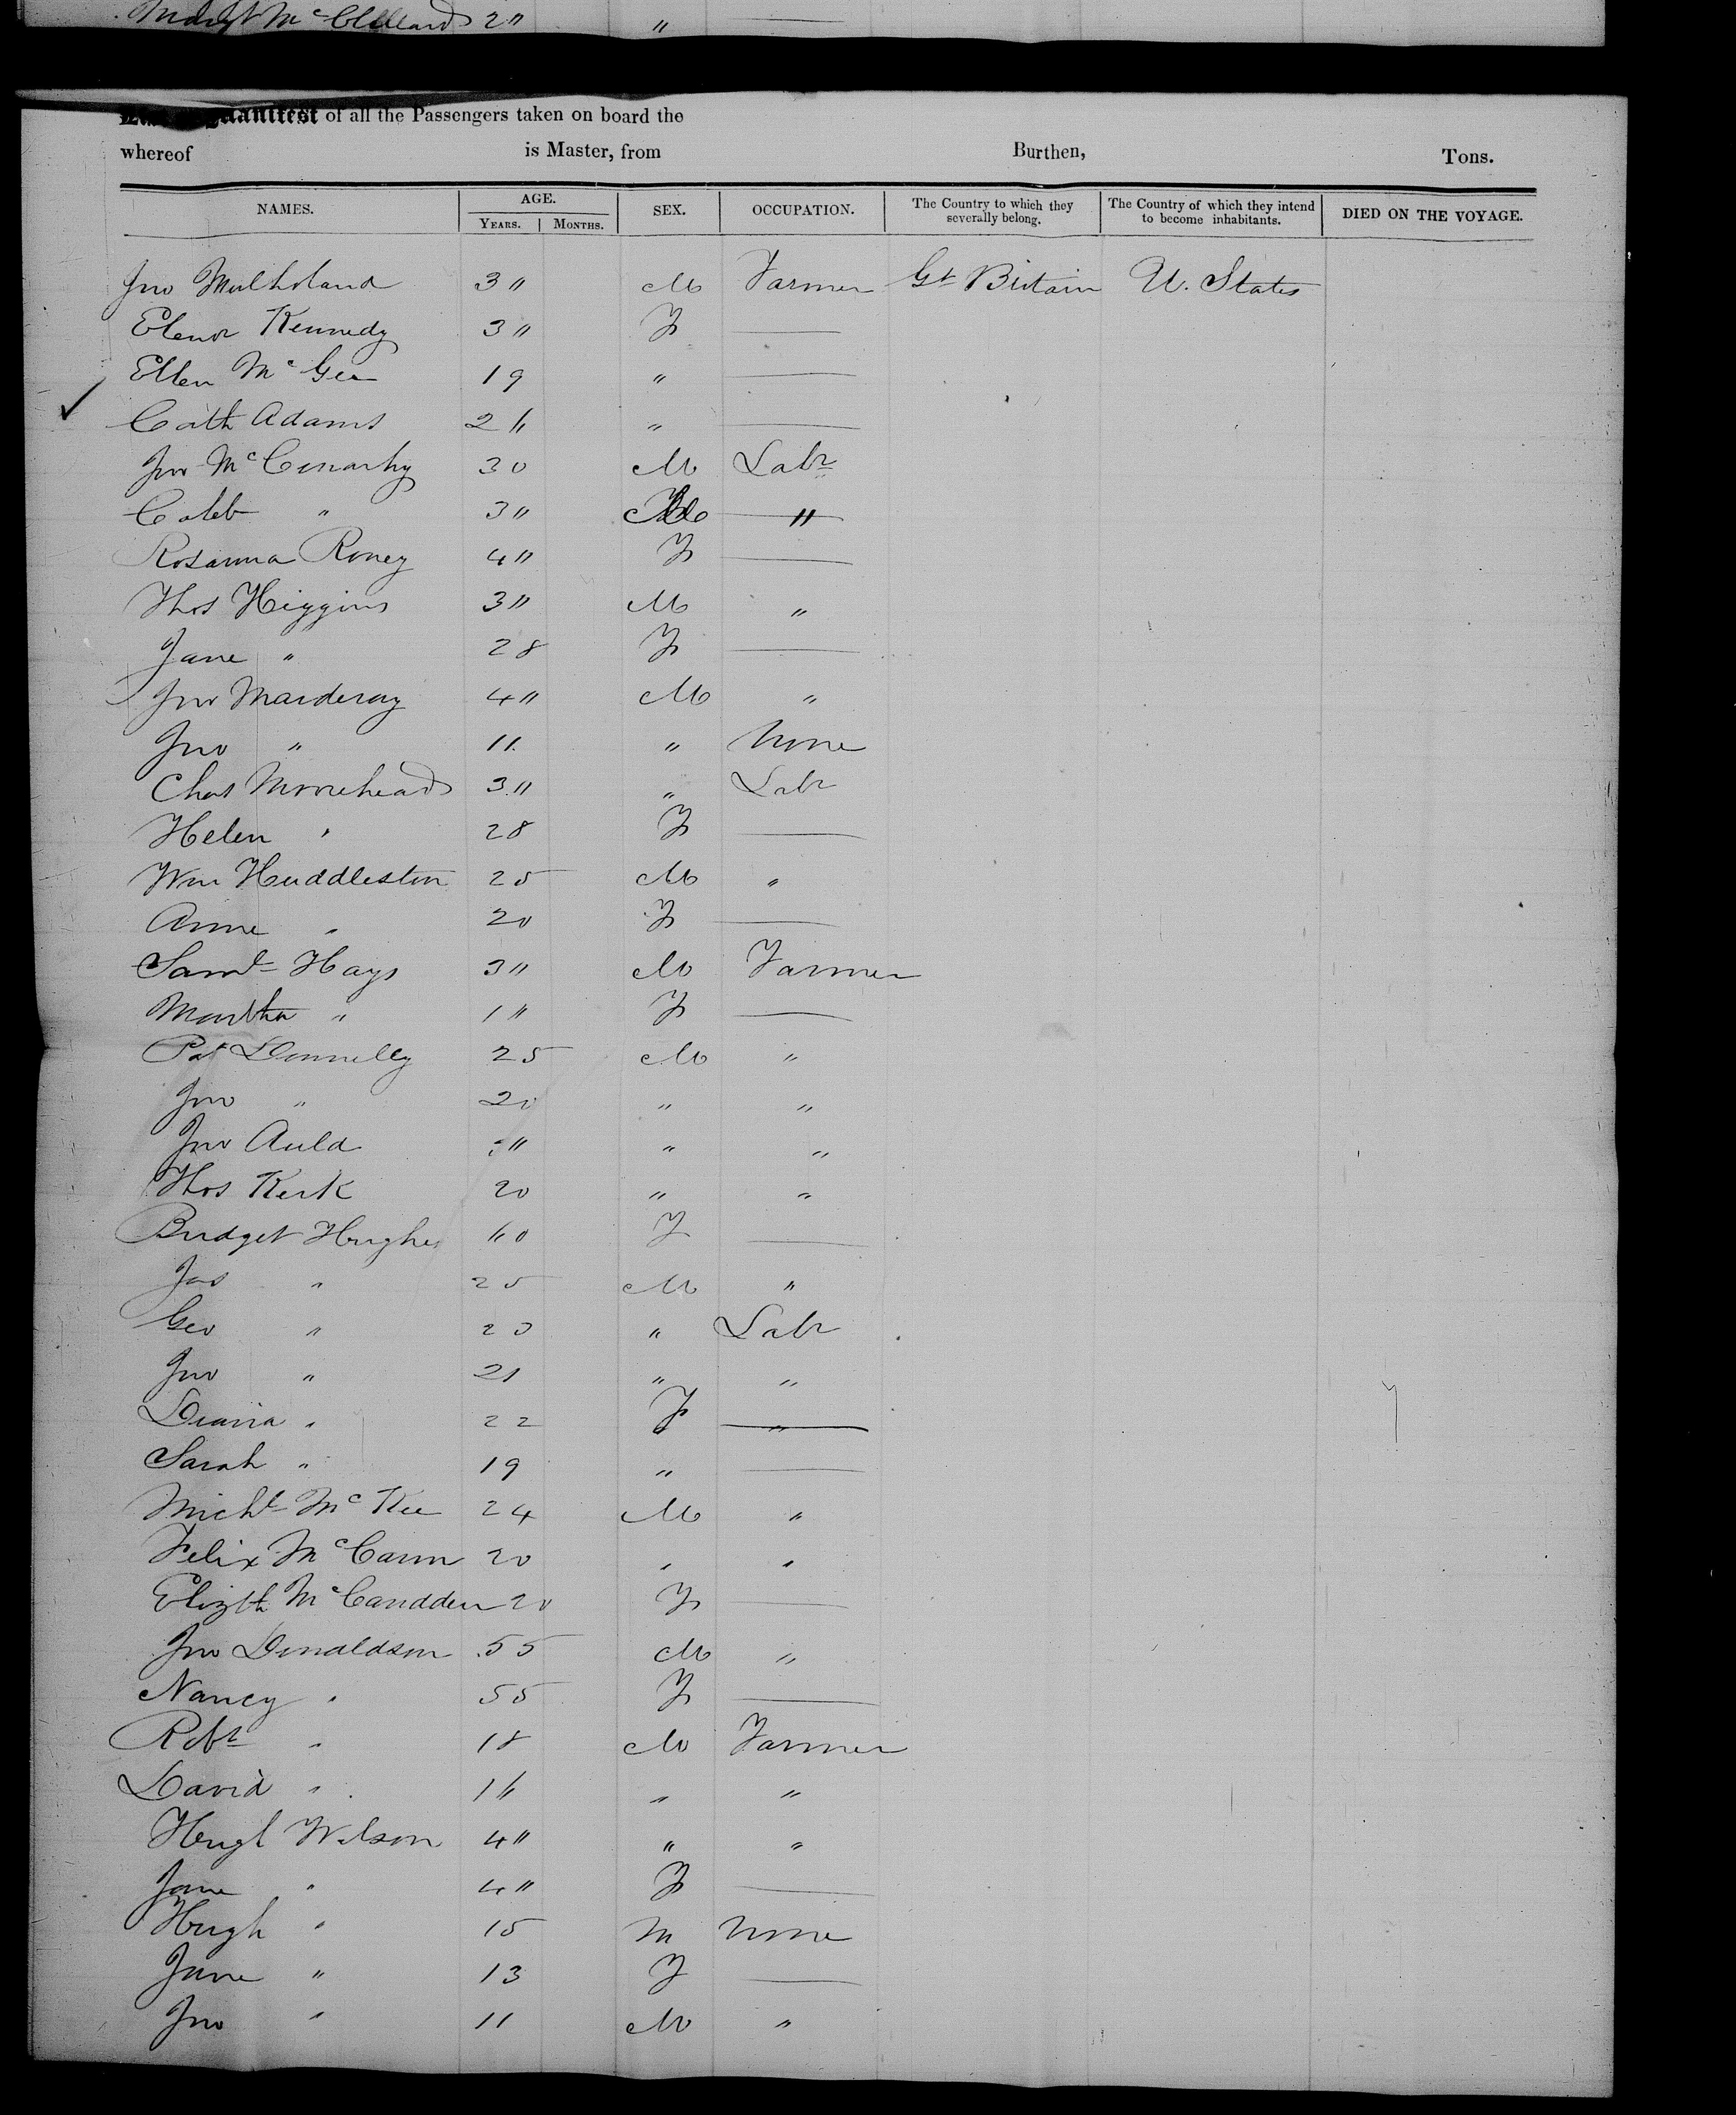 Margt McClelland 2" "
manifest of all the Passengers taken on board the
whereof is Master, from Burthen, Tons.
NAMES. AGE. SEX. OCCUPATION. The Country to which they severally belong. The Country of which they intend to become inhabitants. DIED ON THE VOYAGE.
YEARS. MONTHS.
Jno Mulholand 3" M Farmer Gt Britain U. States
Elenor Kennedy 3" F —
Ellen McGee 19 " —
✓ Cath Adams 26 " —
Jno McConarhy 30 M Labr
Caleb " 3" "
Rosanna Roney 4" F —
Thos Higgins 3" M "
Jane " 28 F —
Jno Marderoy 4" M "
Jno " 11 " None
Chas Moorehead 3" " Labr
Helen " 28 F —
Wm Huddleston 25 M "
Anne " 20 F —
Saml Hays 3" M Farmer
Martha " 1" F —
Pat Donnelly 25 M "
Jno " 20 " "
Jno Auld " " "
Thos Kerk 20 " "
Bridget Hughes 60 F —
Jas " 25 M "
Geo " 23 " Labr
Jno " 21 " "
" 22 F —
Sarah " 19 " —
Michl McKee 24 M "
Felix McCann 20 " "
Elizth McCandden 20 F —
Jno Donaldson 55 M "
Nancy " 55 F —
Robt " 18 M Farmer
David " 16 " "
Hugh Wilson 4" " "
Jane " 4" F —
Hugh " 15 M None
Jane " 13 F —
Jno " 11 M "